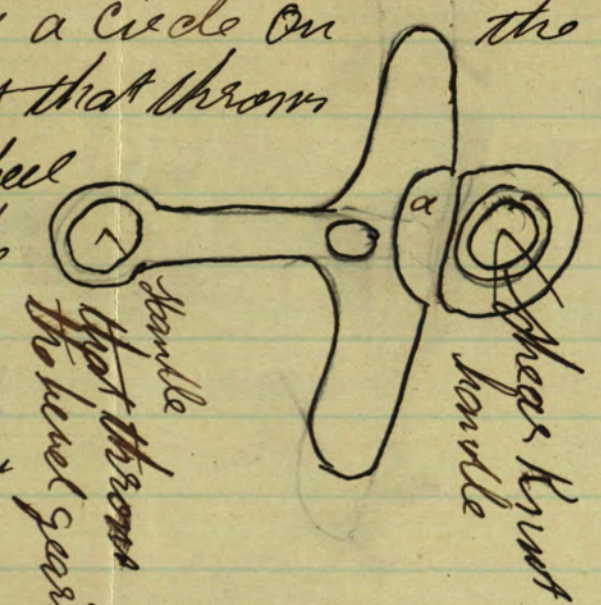 a Circle On the
that throws
a
Handle
that throws
the bevel gear
Shear Knot
handle